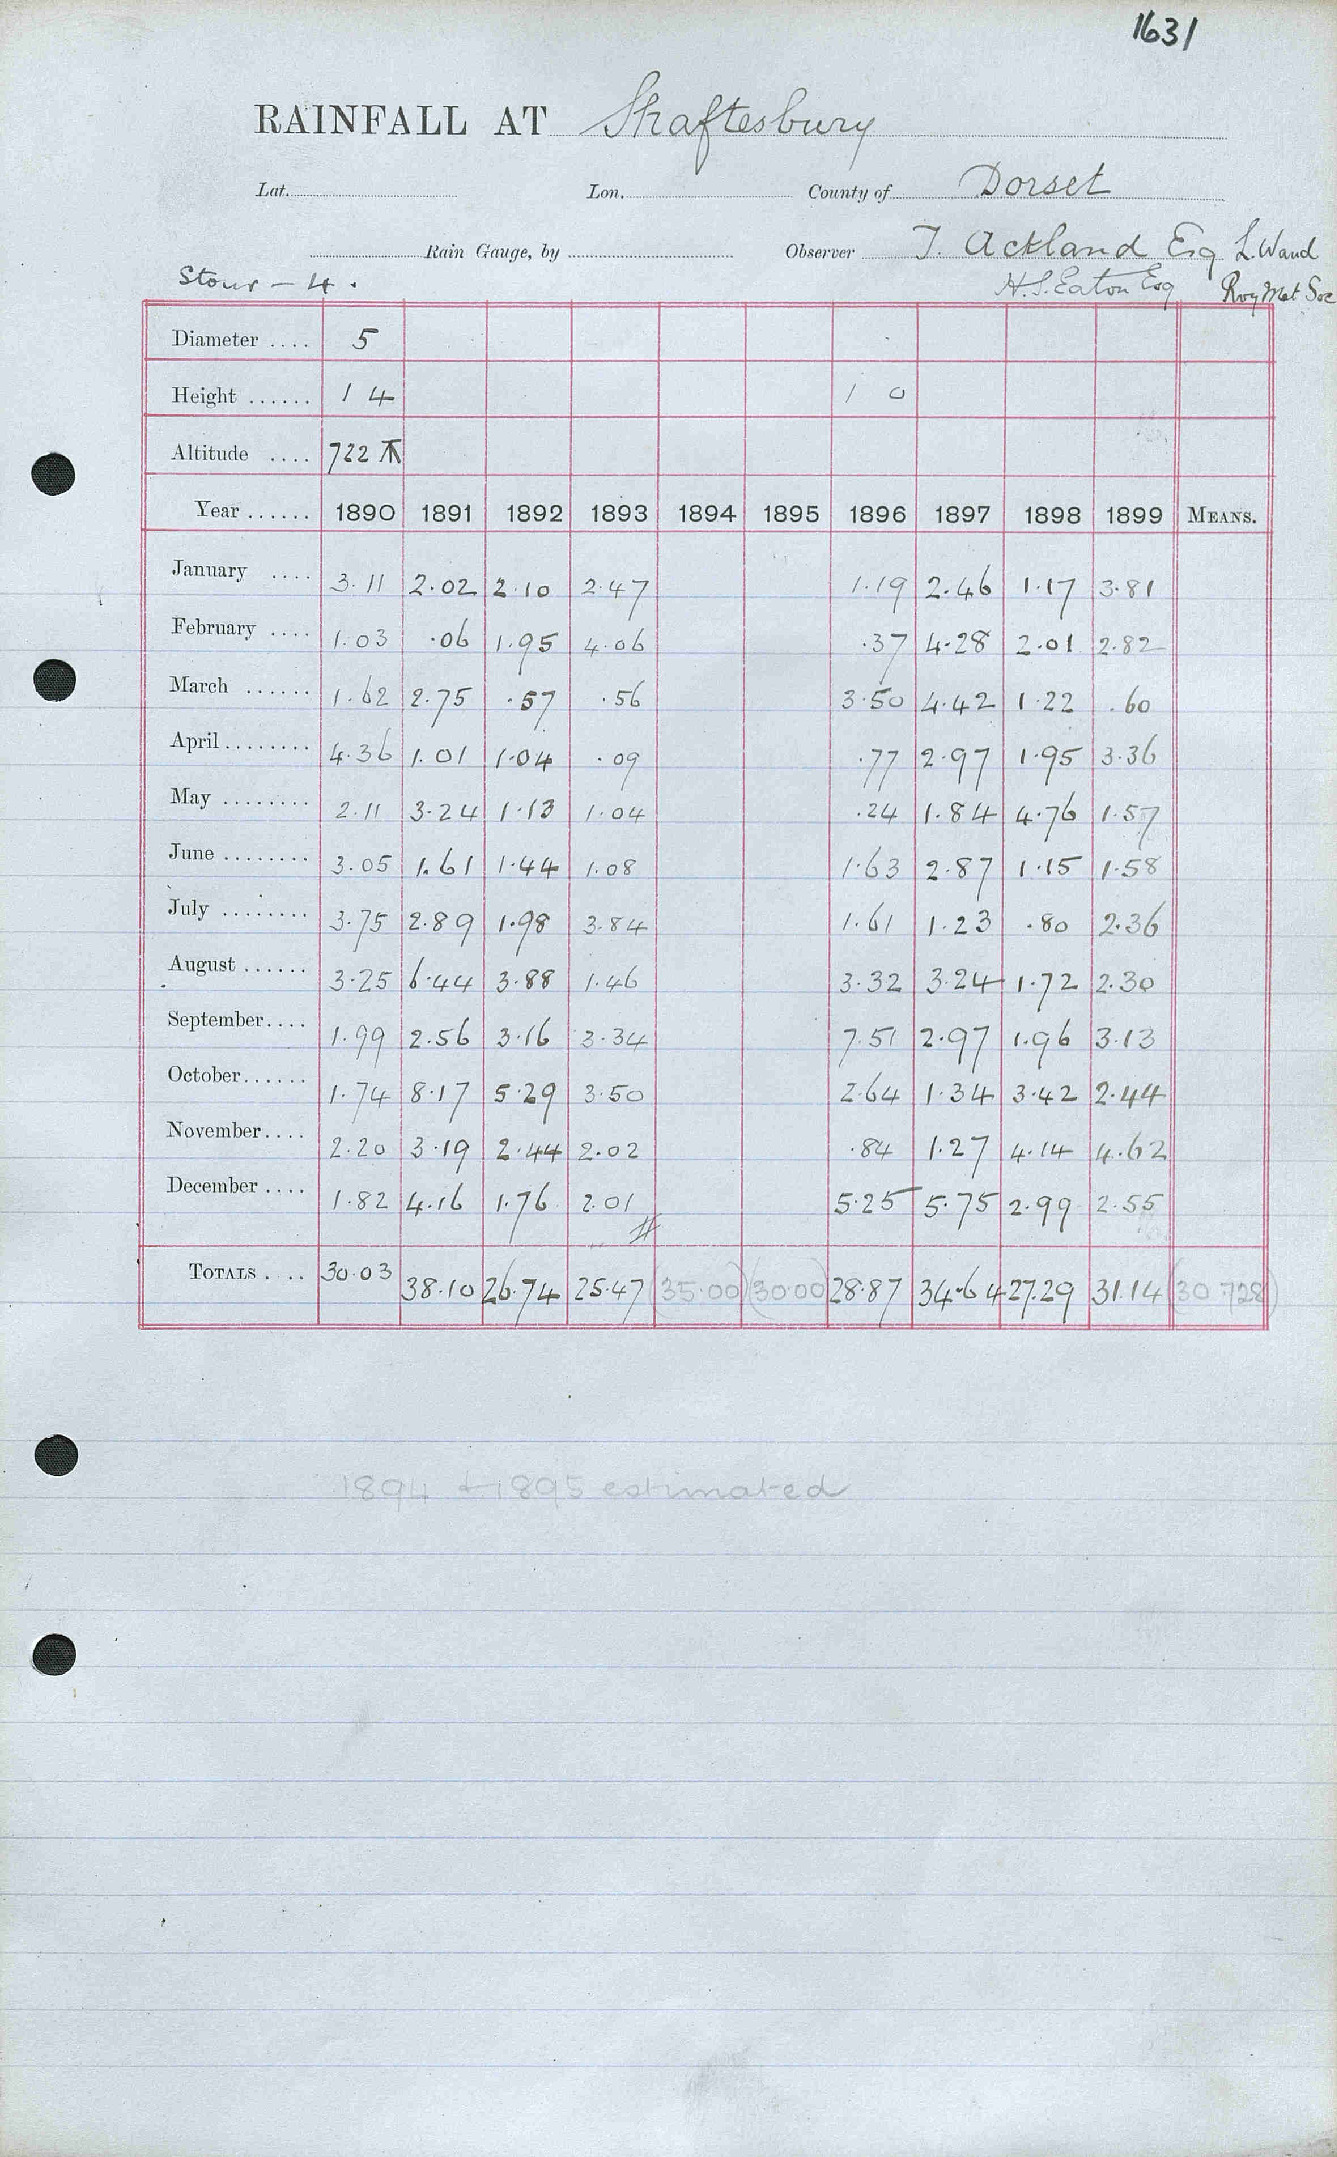 1631
RAINFALL AT Shaftesbury
Lat. Lon. County of Dorset
Rain Gauge, by Observer T. Ackland Esq L. Wand
Stour – 4. H.S. Eaton Esq Roy Met Soc
Diameter .... 5
Height ...... 1 4 1 0
Altitude .... 722
Year ...... 1890 1891 1892 1893 1894 1895 1896 1897 1898 1899 MEANS.
January .... 3.11 2.02 2.10 2.47 1.19 2.46 1.17 3.81
February .... 1.03 .06 1.95 4.06 .37 4.28 2.01 2.82
March ...... 1.62 2.75 .57 .56 3.50 4.42 1.22 .60
April ........ 4.36 1.01 1.04 .09 .77 2.97 1.95 3.36
May ........ 2.11 3.24 1.13 1.04 .24 1.84 4.76 1.57
June ........ 3.05 1.61 1.44 1.08 1.63 2.87 1.15 1.58
July ........ 3.75 2.89 1.98 3.84 1.61 1.23 .80 2.36
August ...... 3.25 6.44 3.88 1.46 3.32 3.24 1.72 2.30
September .... 1.99 2.56 3.16 3.34 7.51 2.97 1.96 3.13
October ...... 1.74 8.17 5.29 3.50 2.64 1.34 3.42 2.44
November .... 2.20 3.19 2.44 2.02 .84 1.27 4.14 4.62
December .... 1.82 4.16 1.76 2.01 5.25 5.75 2.99 2.55
TOTALS .... 30.03 38.10 26.74 25.47 (35.00) (30.00) 28.87 34.64 27.29 31.14 (30.728)
1894 + 1895 estimated